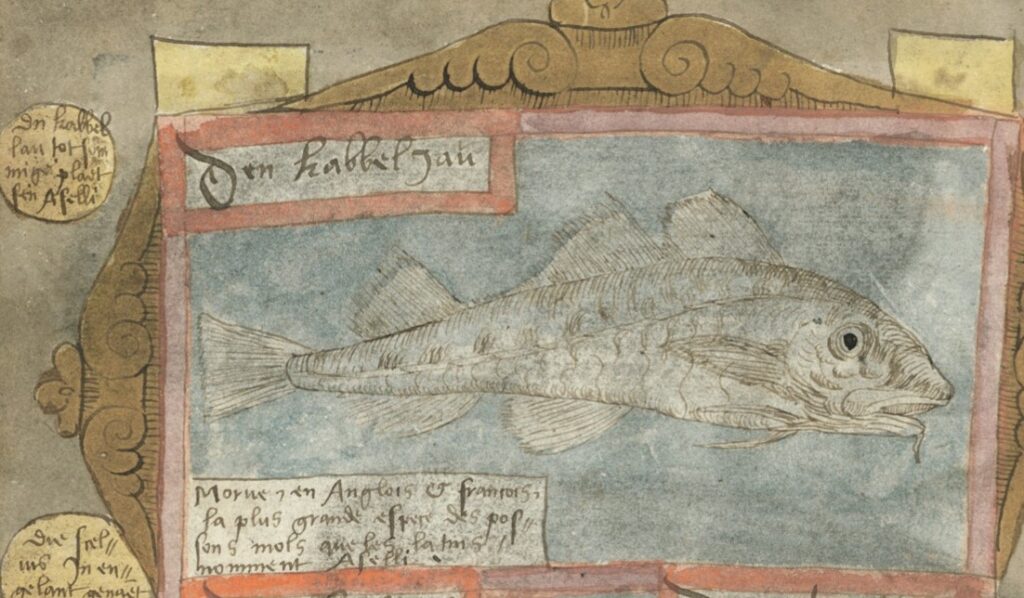 den kabbel
lau tot som
mige plaet
sen Aselli
Den kabbeljau
Morue en Anglois & francois
la plus grande espece des pos=
sons mols que les latins
nomment Aselli.
in en=
gelant